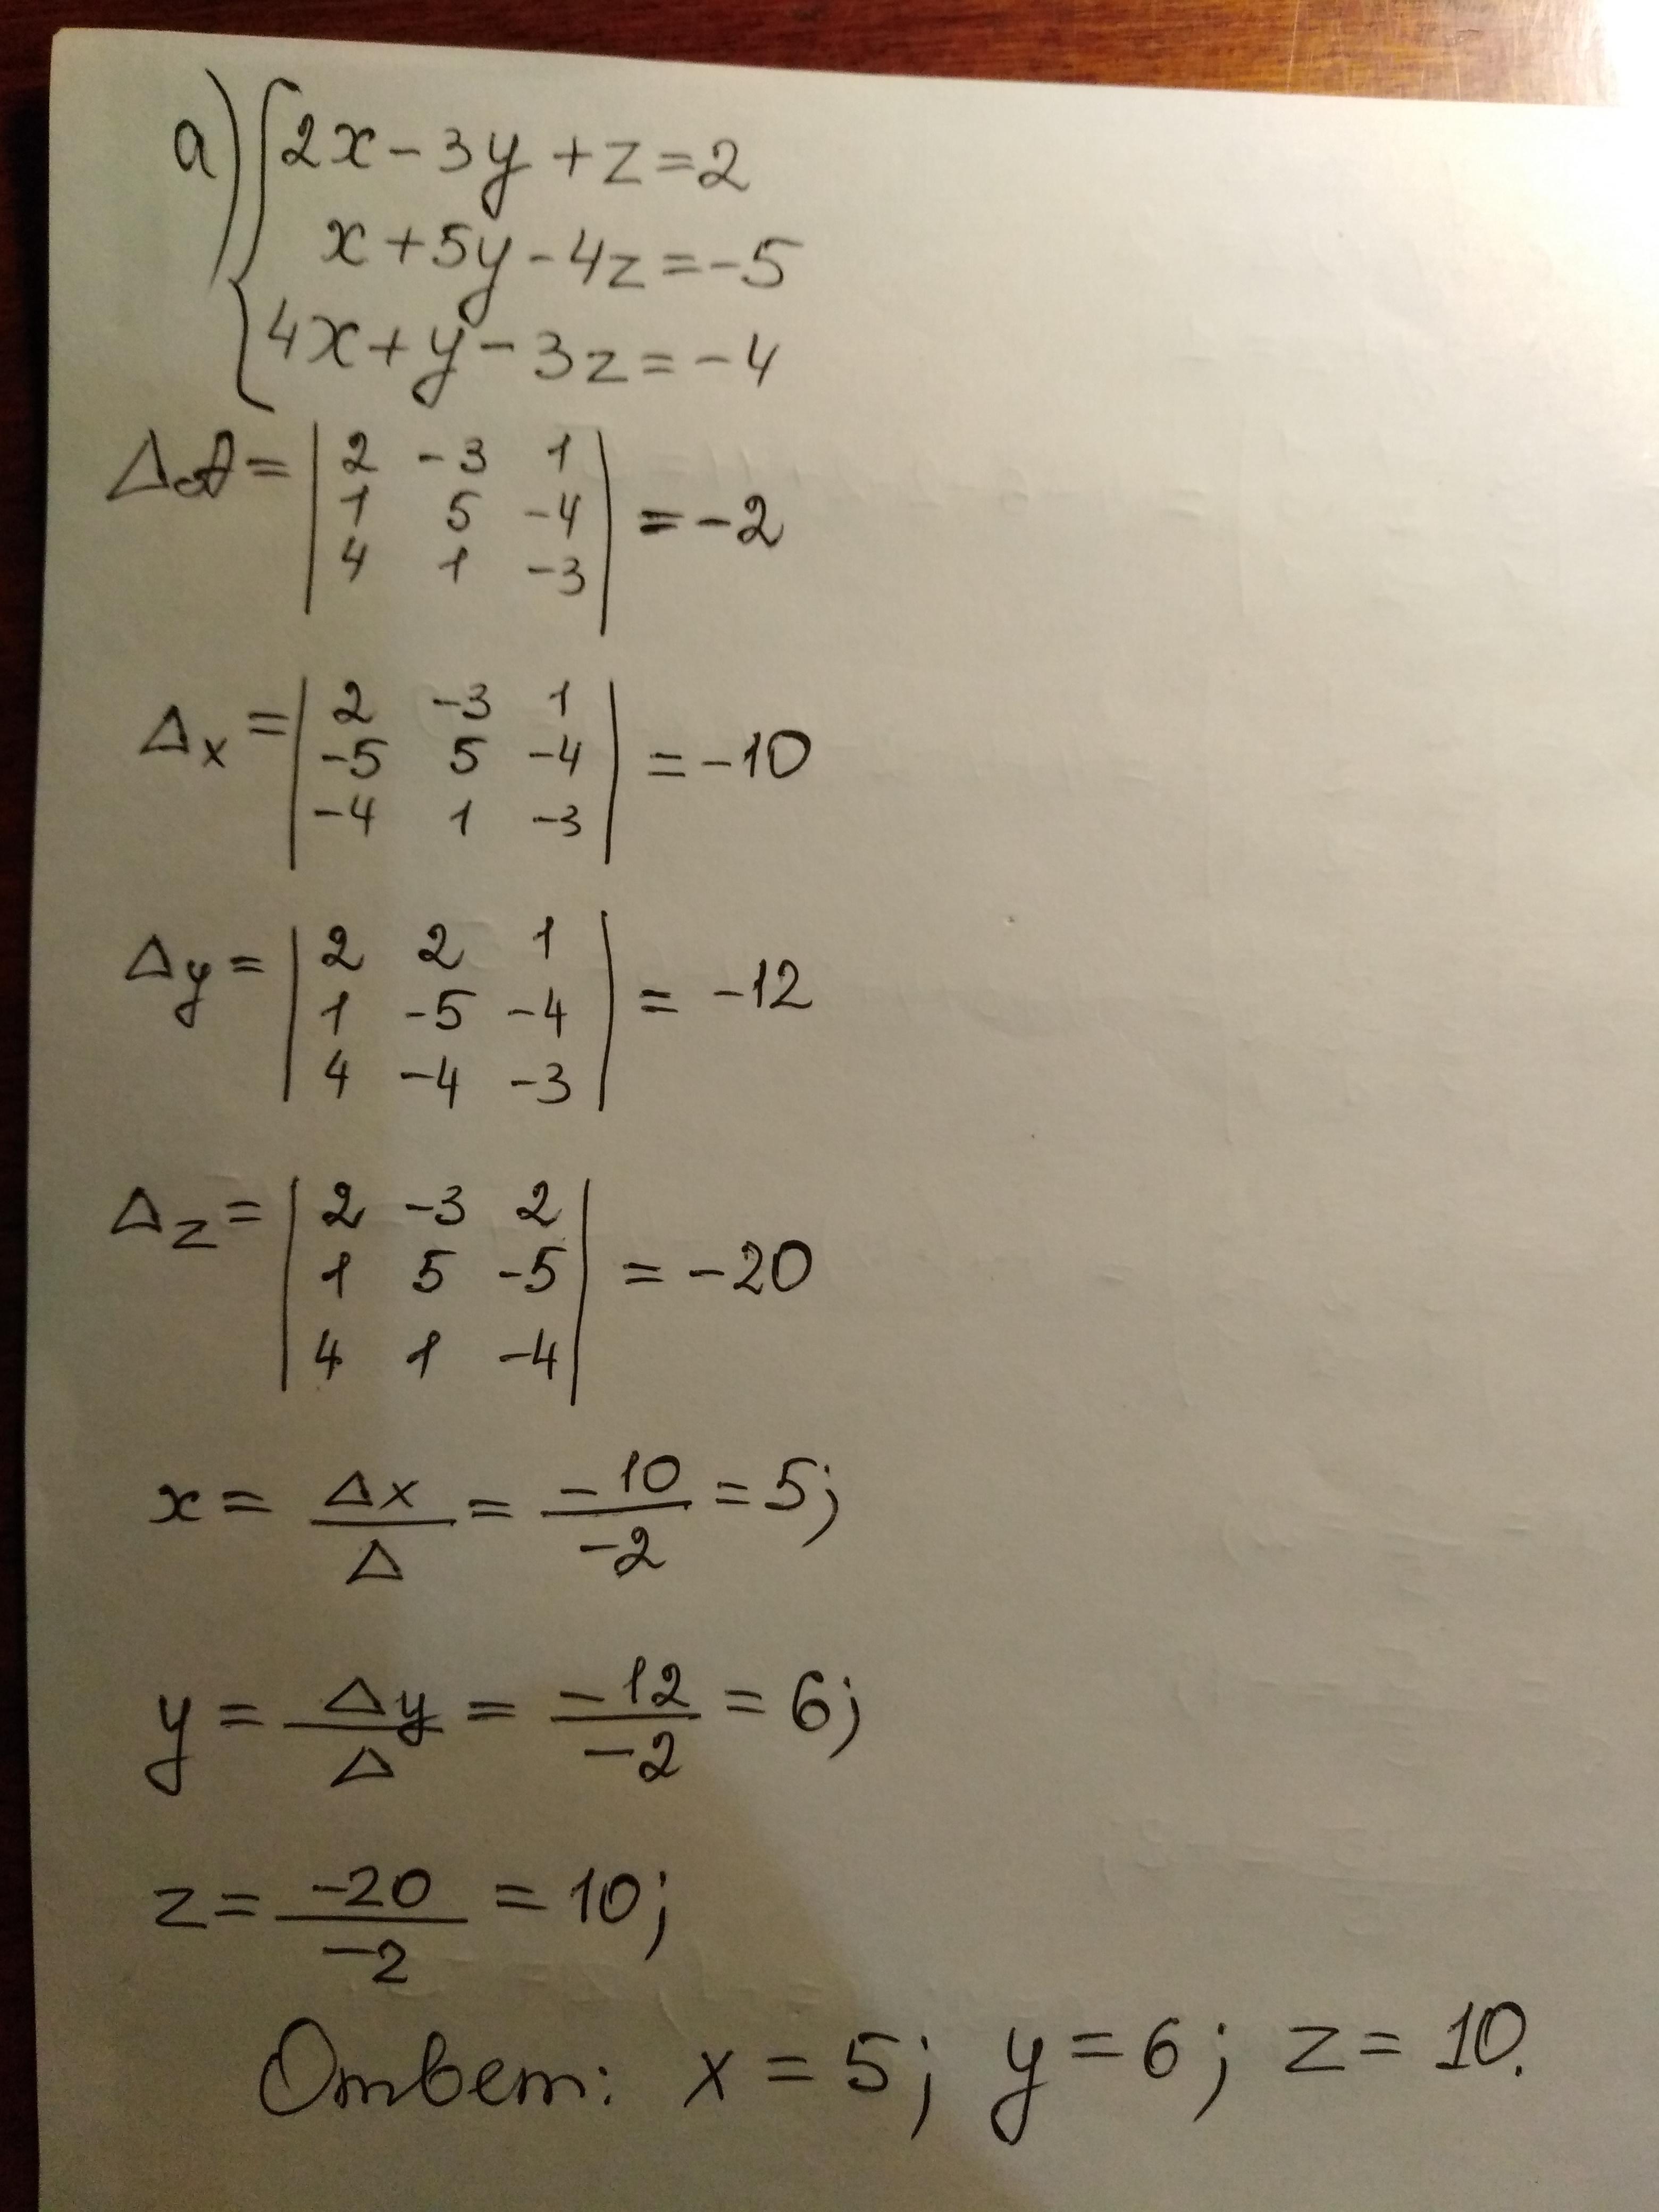 а) { 2x - 3y + z = 2
x + 5y - 4z = -5
4x + y - 3z = -4
Δ = | 2 -3 1 |
| 1 5 -4 | = -2
| 4 1 -3 |
Δx = | 2 -3 1 |
| -5 5 -4 | = -10
| -4 1 -3 |
Δy = | 2 2 1 |
| 1 -5 -4 | = -12
| 4 -4 -3 |
Δz = | 2 -3 2 |
| 1 5 -5 | = -20
| 4 1 -4 |
x = Δx/Δ = -10/-2 = 5;
y = Δy/Δ = -12/-2 = 6;
z = -20/-2 = 10;
Ответ: x = 5; y = 6; z = 10.